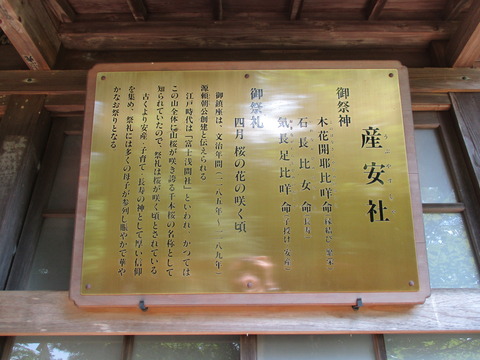 産安社
御祭神
木花開耶比咩命(縁結び・繁栄)
石長比女命(長寿)
氣長足比咩命(子授け・安産)
御祭礼
四月 桜の花の咲く頃
御鎮座は、文治年間(一一八五年~一一八九年)
源頼朝公創建と伝えられる
江戸時代は「富士浅間社」といわれ、かつては
この山全体に山桜が咲き誇る千本桜の名称として
知られていたので、祭礼は桜が咲く頃とされている
古くより安産・子育て・長寿の神として厚い信仰
を集め、祭礼には多くの母子が参列し賑やかで華や
かなお祭りとなる